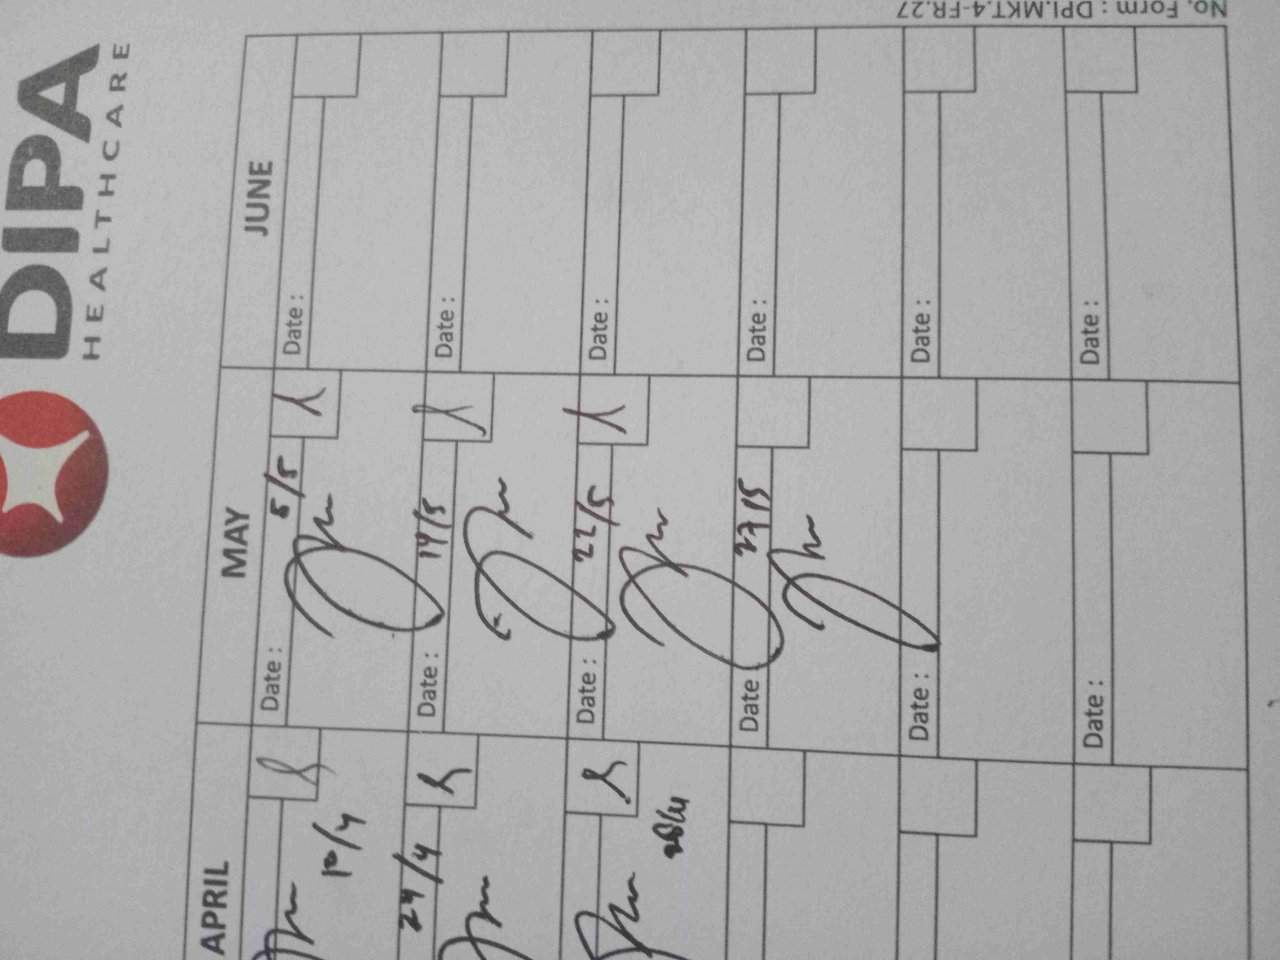 DIPA
HEALTHCARE
APRIL
MAY
JUNE
10/4
Date : 5/5
Date :
24/4
Date : 19/5
Date :
28/4
Date : 22/5
Date :
Date : 27/5
Date :
Date :
Date :
Date :
Date :
No. Form : DPI.MKT.4-FR.27